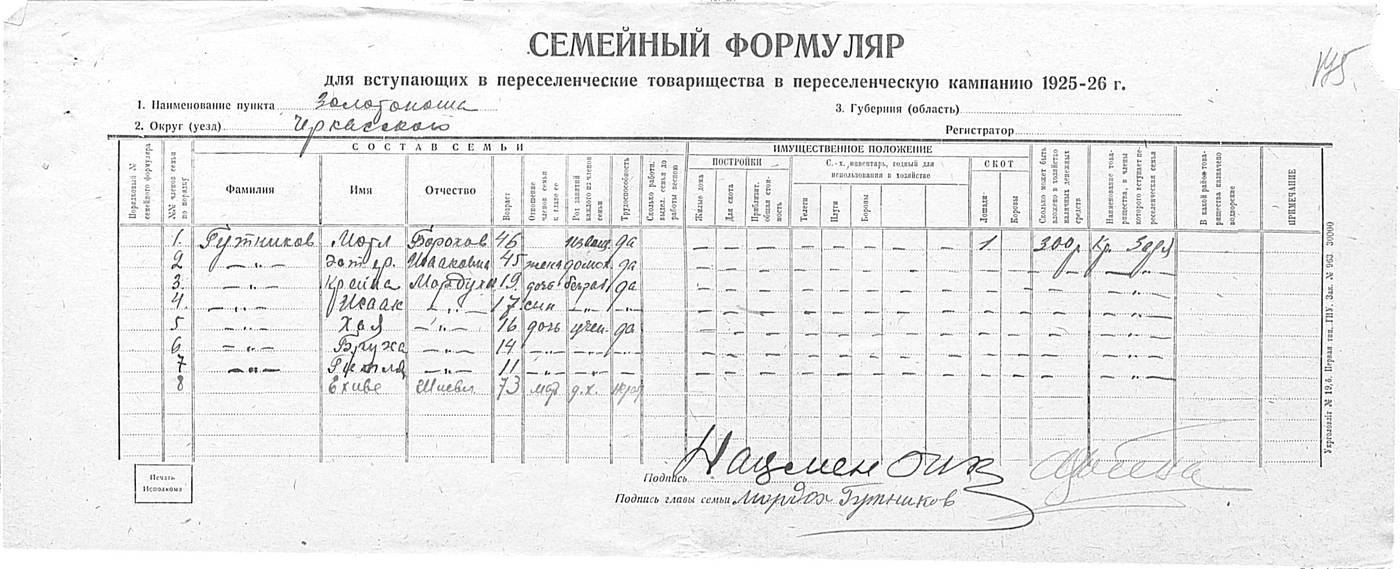 175
СЕМЕЙНЫЙ ФОРМУЛЯР
для вступающих в переселенческие товарищества в переселенческую кампанию 1925-26 г.
1. Наименование пункта Золотоноша
3. Губерния (область)
2. Округ (уезд) Черкасского
Регистратор
СОСТАВ СЕМЬИ
ИМУЩЕСТВЕННОЕ ПОЛОЖЕНИЕ
Порядковый № семейного формуляра
№№ членов семьи по порядку
Фамилия
Имя
Отчество
Возраст
Отношение членов семьи к главе ее
Род занятий каждого из членов семьи
Трудоспособность
Сколько работн. выдел. семья до работы весною
ПОСТРОЙКИ
Жилые дома
Для скота
Приблизит. общая стоимость
С.-х. инвентарь, годный для использования в хозяйстве
Телеги
Плуги
Бороны
СКОТ
Лошади
Коровы
Сколько может быть вложено в хозяйство наличных денежных средств
Наименование товарищества, в члены которого вступает переселенческая семья
В какой район товарищества назначено водворение
ПРИМЕЧАНИЕ
1. Гутников Мотл Борохов 46 да — — — — — — 1 — 300р Кр. Заря
2 — „ — Эстер. Исааковна 45 жена домох. да — — — — — — — — — — „ —
3. — „ — Крейна Мордухов 19 дочь да — — — — — — — — — — „ —
4. — „ — Исаак — „ — 17 син — — — — — — — — — — — „ —
5 — „ — Хая — „ — 16 дочь учен. да — — — — — — — — — — „ —
6 — „ — Бруха — „ — 14 — „ — — „ — — „ — — — — — — — — — — — „ —
7 — „ — — „ — 11 — „ — — „ — — „ — — — — — — — — — — — „ —
8 73 д.х.
Печать Исполкома
Подпись Нацмен
Подпись главы семьи Мордох Гутников
Укрголовліт № 19,6. Первая тип. ГИУ. Зак. № 963 30000